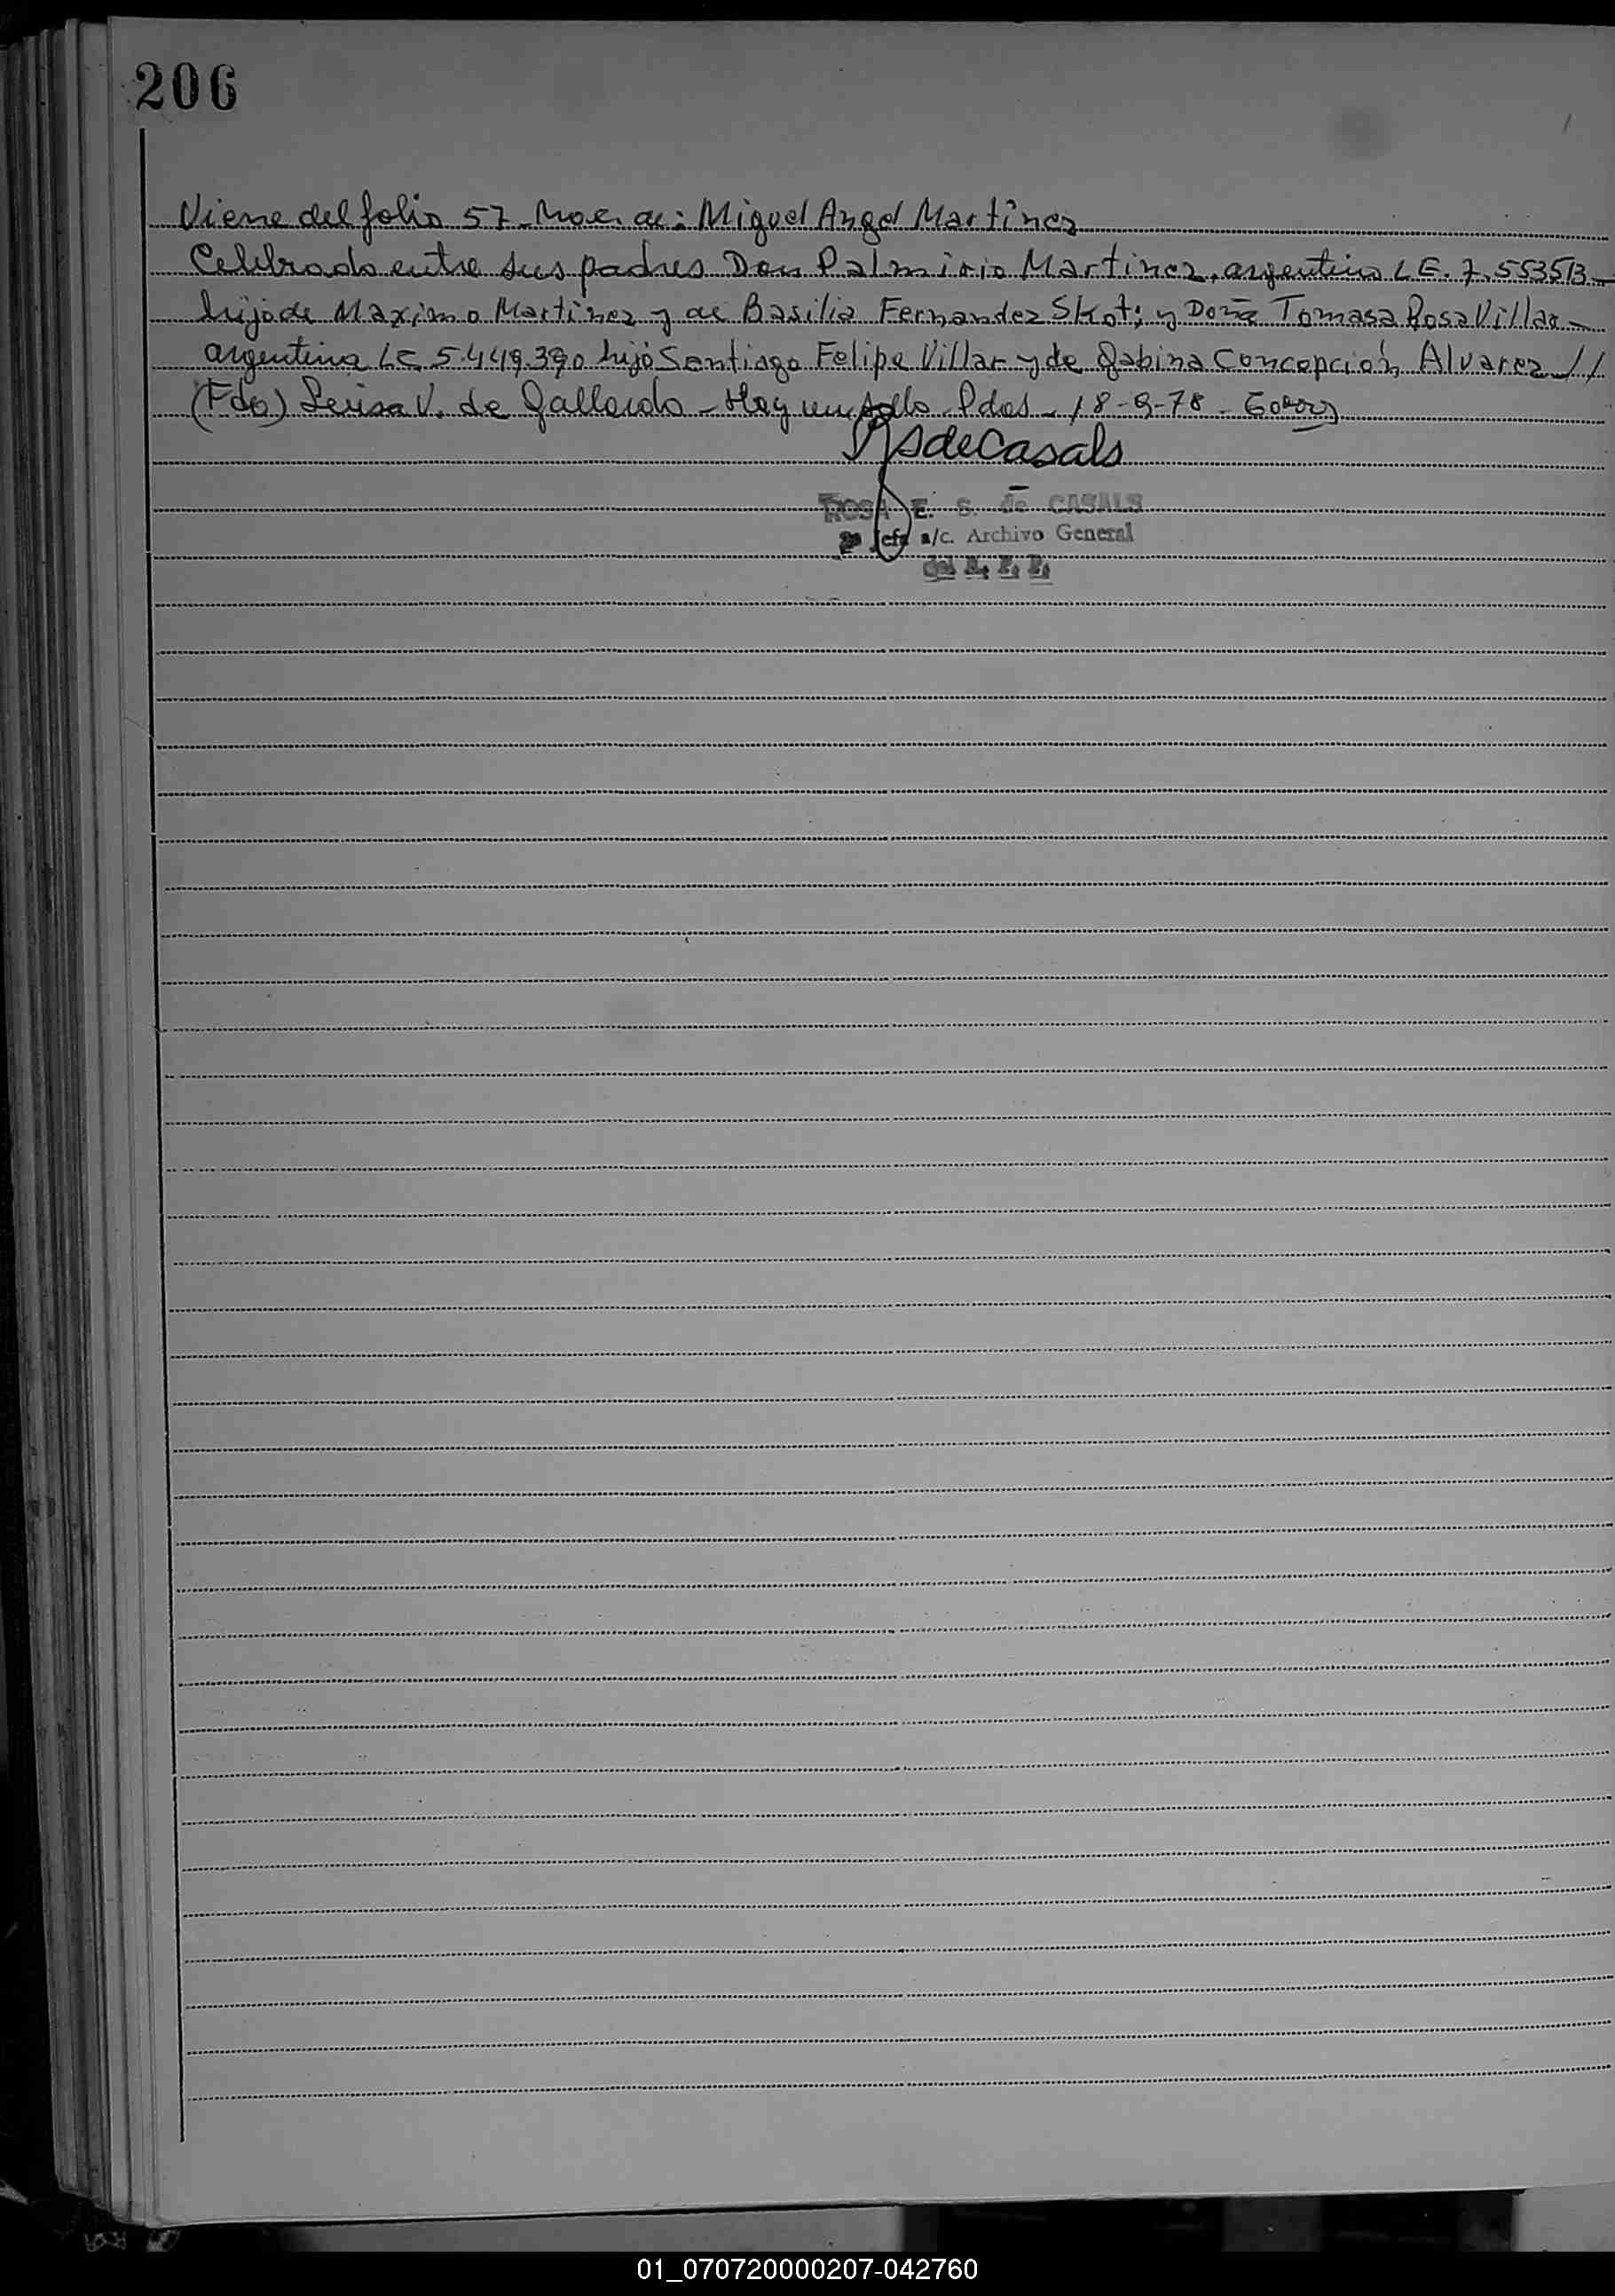 206
Viene del folio 57_ Nac. de: Miguel Angel Martínez
Celebrado entre sus padres Don Palmirio Martinez, argentino L E. 7.553513_
hijo de Maximo Martínez y de Basilia Fernandez Skot; y Doña Tomasa Rosa Villar_
argentina LC 5.449.390 hijo Santiago Felipe Villar y de Gabina Concepción Alvarez //
(Fdo) Luisa V. de Gallardo - Hay un sello - Pdas - 18-9-78 -
RSdeCasals
ROSA E. S. de CASALS
2a Jefe a/c. Archivo General
del R. P. P.
01_070720000207-042760